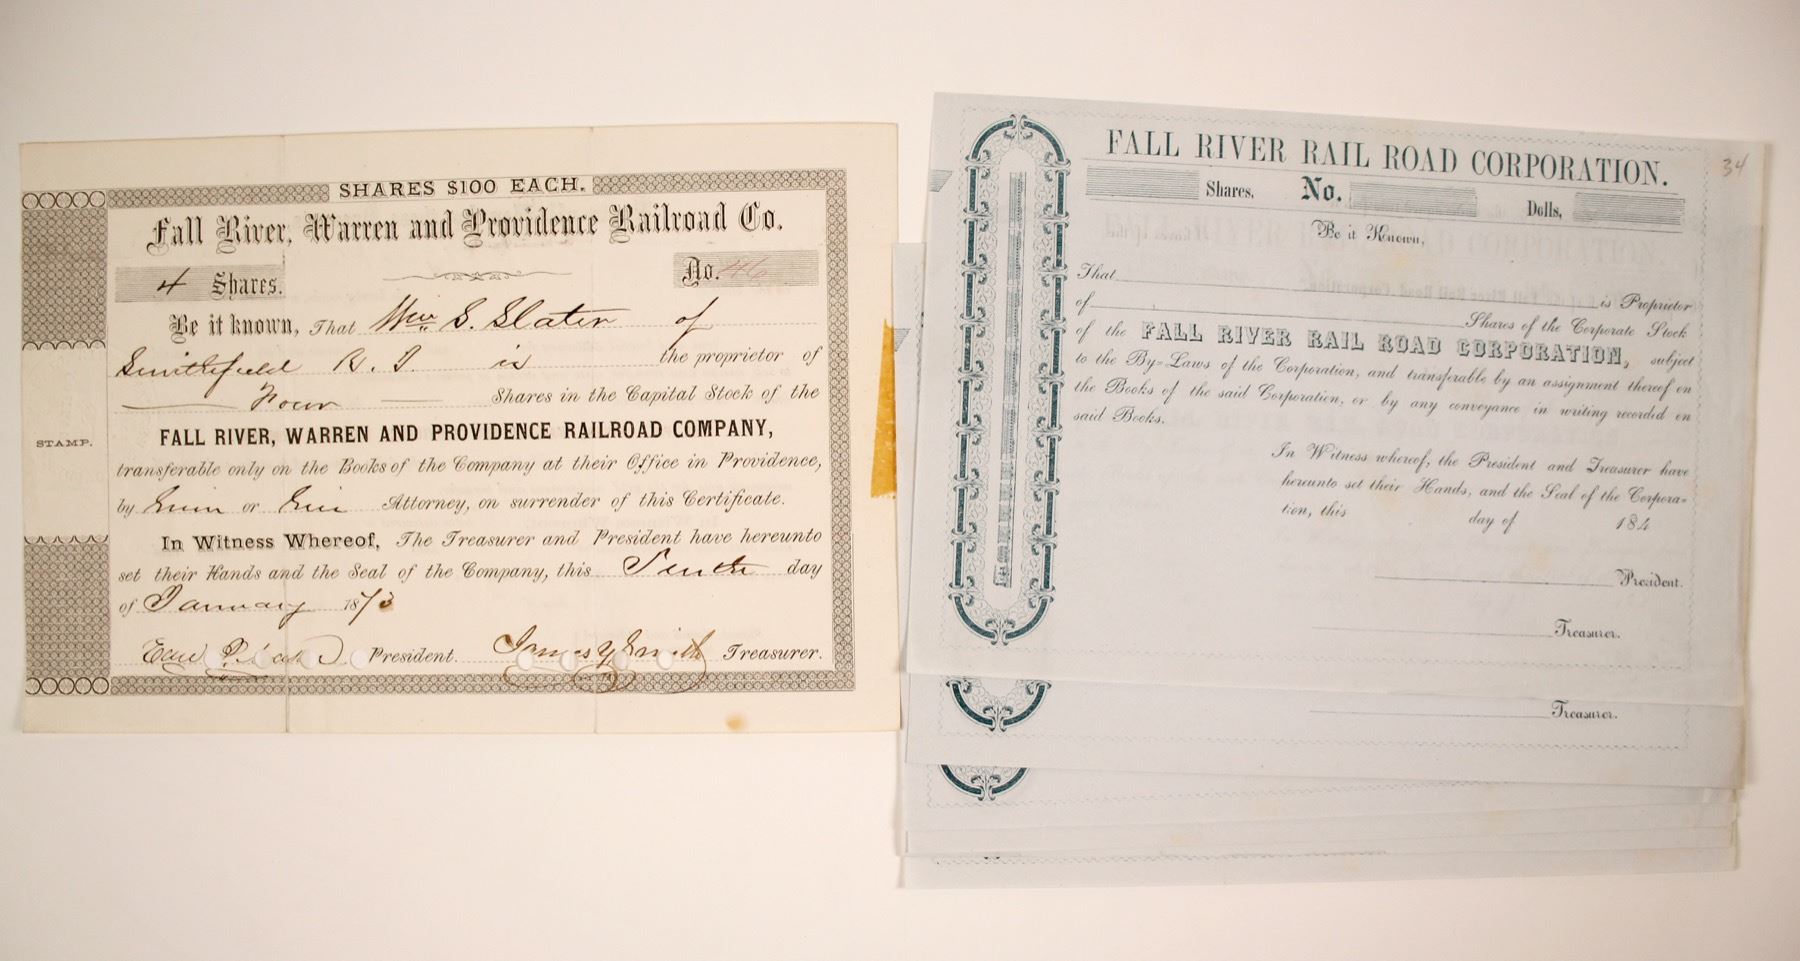 SHARES $100 EACH.
Fall River, Warren and Providence Railroad Co.
4 Shares. No. 46
Be it known, That Wm. S. Slater of
Smithfield R. I. is the proprietor of
Four Shares in the Capital Stock of the
FALL RIVER, WARREN AND PROVIDENCE RAILROAD COMPANY,
transferable only on the Books of the Company at their Office in Providence,
by him or his Attorney, on surrender of this Certificate.
In Witness Whereof, The Treasurer and President have hereunto
set their Hands and the Seal of the Company, this Tenth day
of January 1873
President. James Y. Smith Treasurer.
STAMP.
FALL RIVER RAIL ROAD CORPORATION.
34
Shares, No. Dolls,
Be it Known,
That
of is Proprietor
Shares of the Corporate Stock
of the FALL RIVER RAIL ROAD CORPORATION, subject
to the By=Laws of the Corporation, and transferable by an assignment thereof on
the Books of the said Corporation, or by any conveyance in writing recorded on
said Books.
In Witness whereof, the President and Treasurer have
hereunto set their Hands, and the Seal of the Corpora=
tion, this day of 184
President.
Treasurer.
Treasurer.